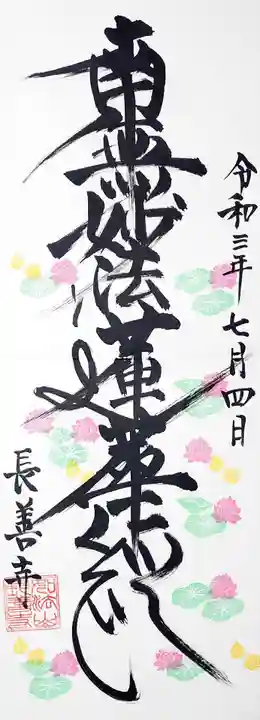 令和三年七月四日
南無妙法蓮華経
長善寺